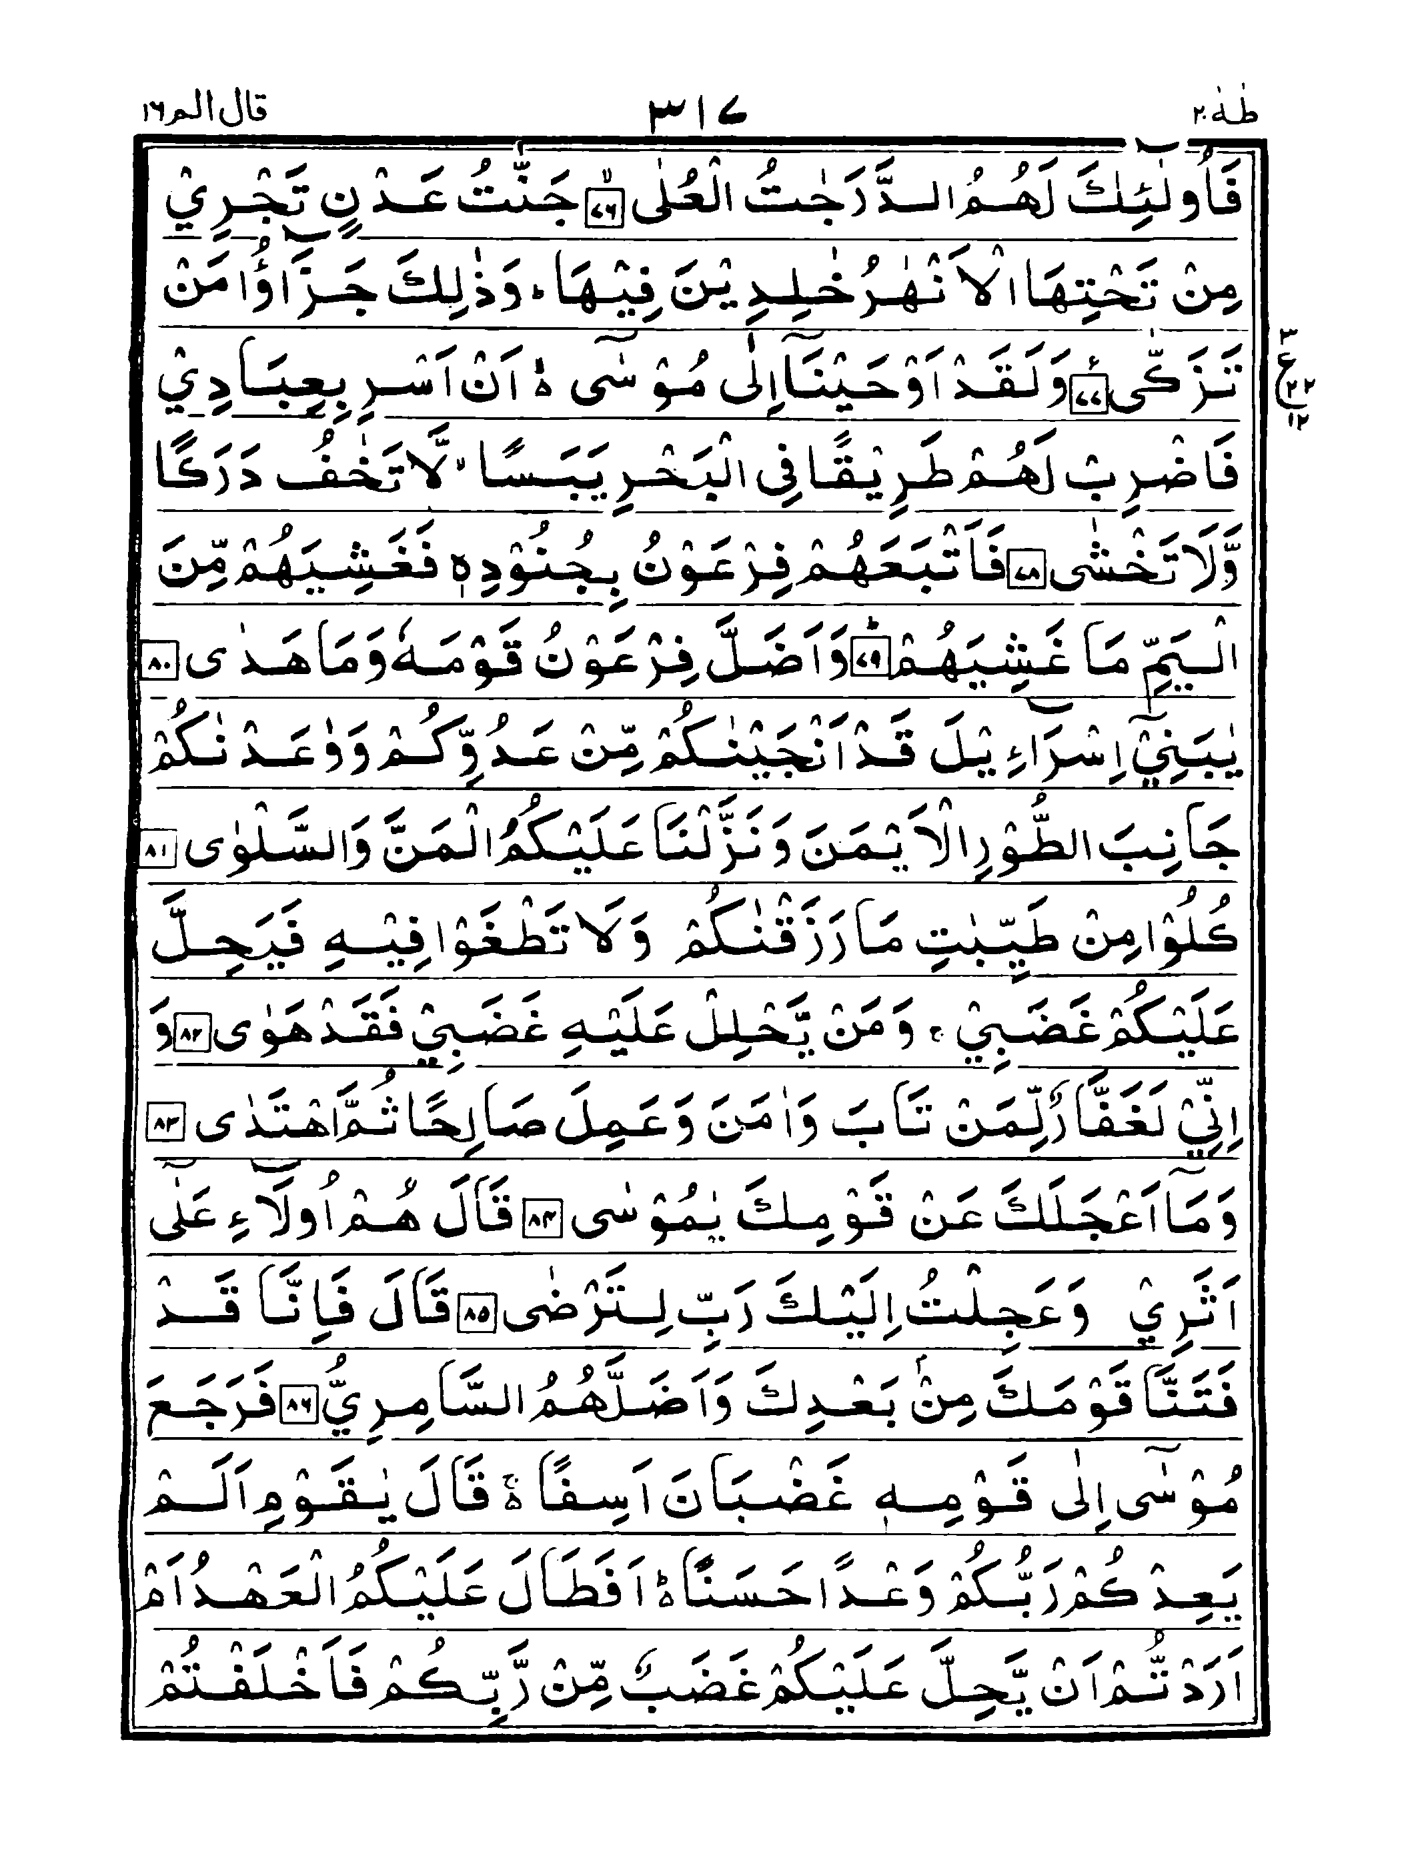 طٰهٰ ٢٠
٣١٧
قال الم ١٦
فَاُولٰٓئِكَ لَهُمُ الدَّرَجٰتُ الْعُلٰى ۙ ﴿٧٦﴾ جَنّٰتُ عَدْنٍ تَجْرِيْ
مِنْ تَحْتِهَا الْاَنْهٰرُ خٰلِدِيْنَ فِيْهَا ؕ وَذٰلِكَ جَزَآؤُا مَنْ
تَزَكّٰى ﴿٧٧﴾ وَلَقَدْ اَوْحَيْنَآ اِلٰى مُوْسٰٓى ۙ اَنْ اَسْرِ بِعِبَادِيْ
فَاضْرِبْ لَهُمْ طَرِيْقًا فِى الْبَحْرِ يَبَسًا ۙ لَّا تَخٰفُ دَرَكًا
وَّلَا تَخْشٰى ﴿٧٨﴾ فَاَتْبَعَهُمْ فِرْعَوْنُ بِجُنُوْدِهٖ فَغَشِيَهُمْ مِّنَ
الْيَمِّ مَا غَشِيَهُمْ ؕ ﴿٧٩﴾ وَاَضَلَّ فِرْعَوْنُ قَوْمَهٗ وَمَا هَدٰى ﴿٨٠﴾
يٰبَنِيْٓ اِسْرَآءِيْلَ قَدْ اَنْجَيْنٰكُمْ مِّنْ عَدُوِّكُمْ وَوٰعَدْنٰكُمْ
جَانِبَ الطُّوْرِ الْاَيْمَنَ وَنَزَّلْنَا عَلَيْكُمُ الْمَنَّ وَالسَّلْوٰى ﴿٨١﴾
كُلُوْا مِنْ طَيِّبٰتِ مَا رَزَقْنٰكُمْ وَلَا تَطْغَوْا فِيْهِ فَيَحِلَّ
عَلَيْكُمْ غَضَبِيْ ۚ وَمَنْ يَّحْلِلْ عَلَيْهِ غَضَبِيْ فَقَدْ هَوٰى ﴿٨٢﴾ وَ
اِنِّيْ لَغَفَّارٌ لِّمَنْ تَابَ وَاٰمَنَ وَعَمِلَ صَالِحًا ثُمَّ اهْتَدٰى ﴿٨٣﴾
وَمَآ اَعْجَلَكَ عَنْ قَوْمِكَ يٰمُوْسٰى ﴿٨٤﴾ قَالَ هُمْ اُولَآءِ عَلٰٓى
اَثَرِيْ وَعَجِلْتُ اِلَيْكَ رَبِّ لِتَرْضٰى ﴿٨٥﴾ قَالَ فَاِنَّا قَدْ
فَتَنَّا قَوْمَكَ مِنْۢ بَعْدِكَ وَاَضَلَّهُمُ السَّامِرِيُّ ﴿٨٦﴾ فَرَجَعَ
مُوْسٰٓى اِلٰى قَوْمِهٖ غَضْبَانَ اَسِفًا ۚ قَالَ يٰقَوْمِ اَلَمْ
يَعِدْكُمْ رَبُّكُمْ وَعْدًا حَسَنًا ؕ اَفَطَالَ عَلَيْكُمُ الْعَهْدُ اَمْ
اَرَدْتُّمْ اَنْ يَّحِلَّ عَلَيْكُمْ غَضَبٌ مِّنْ رَّبِّكُمْ فَاَخْلَفْتُمْ
٣
ع
٢٢
١٢